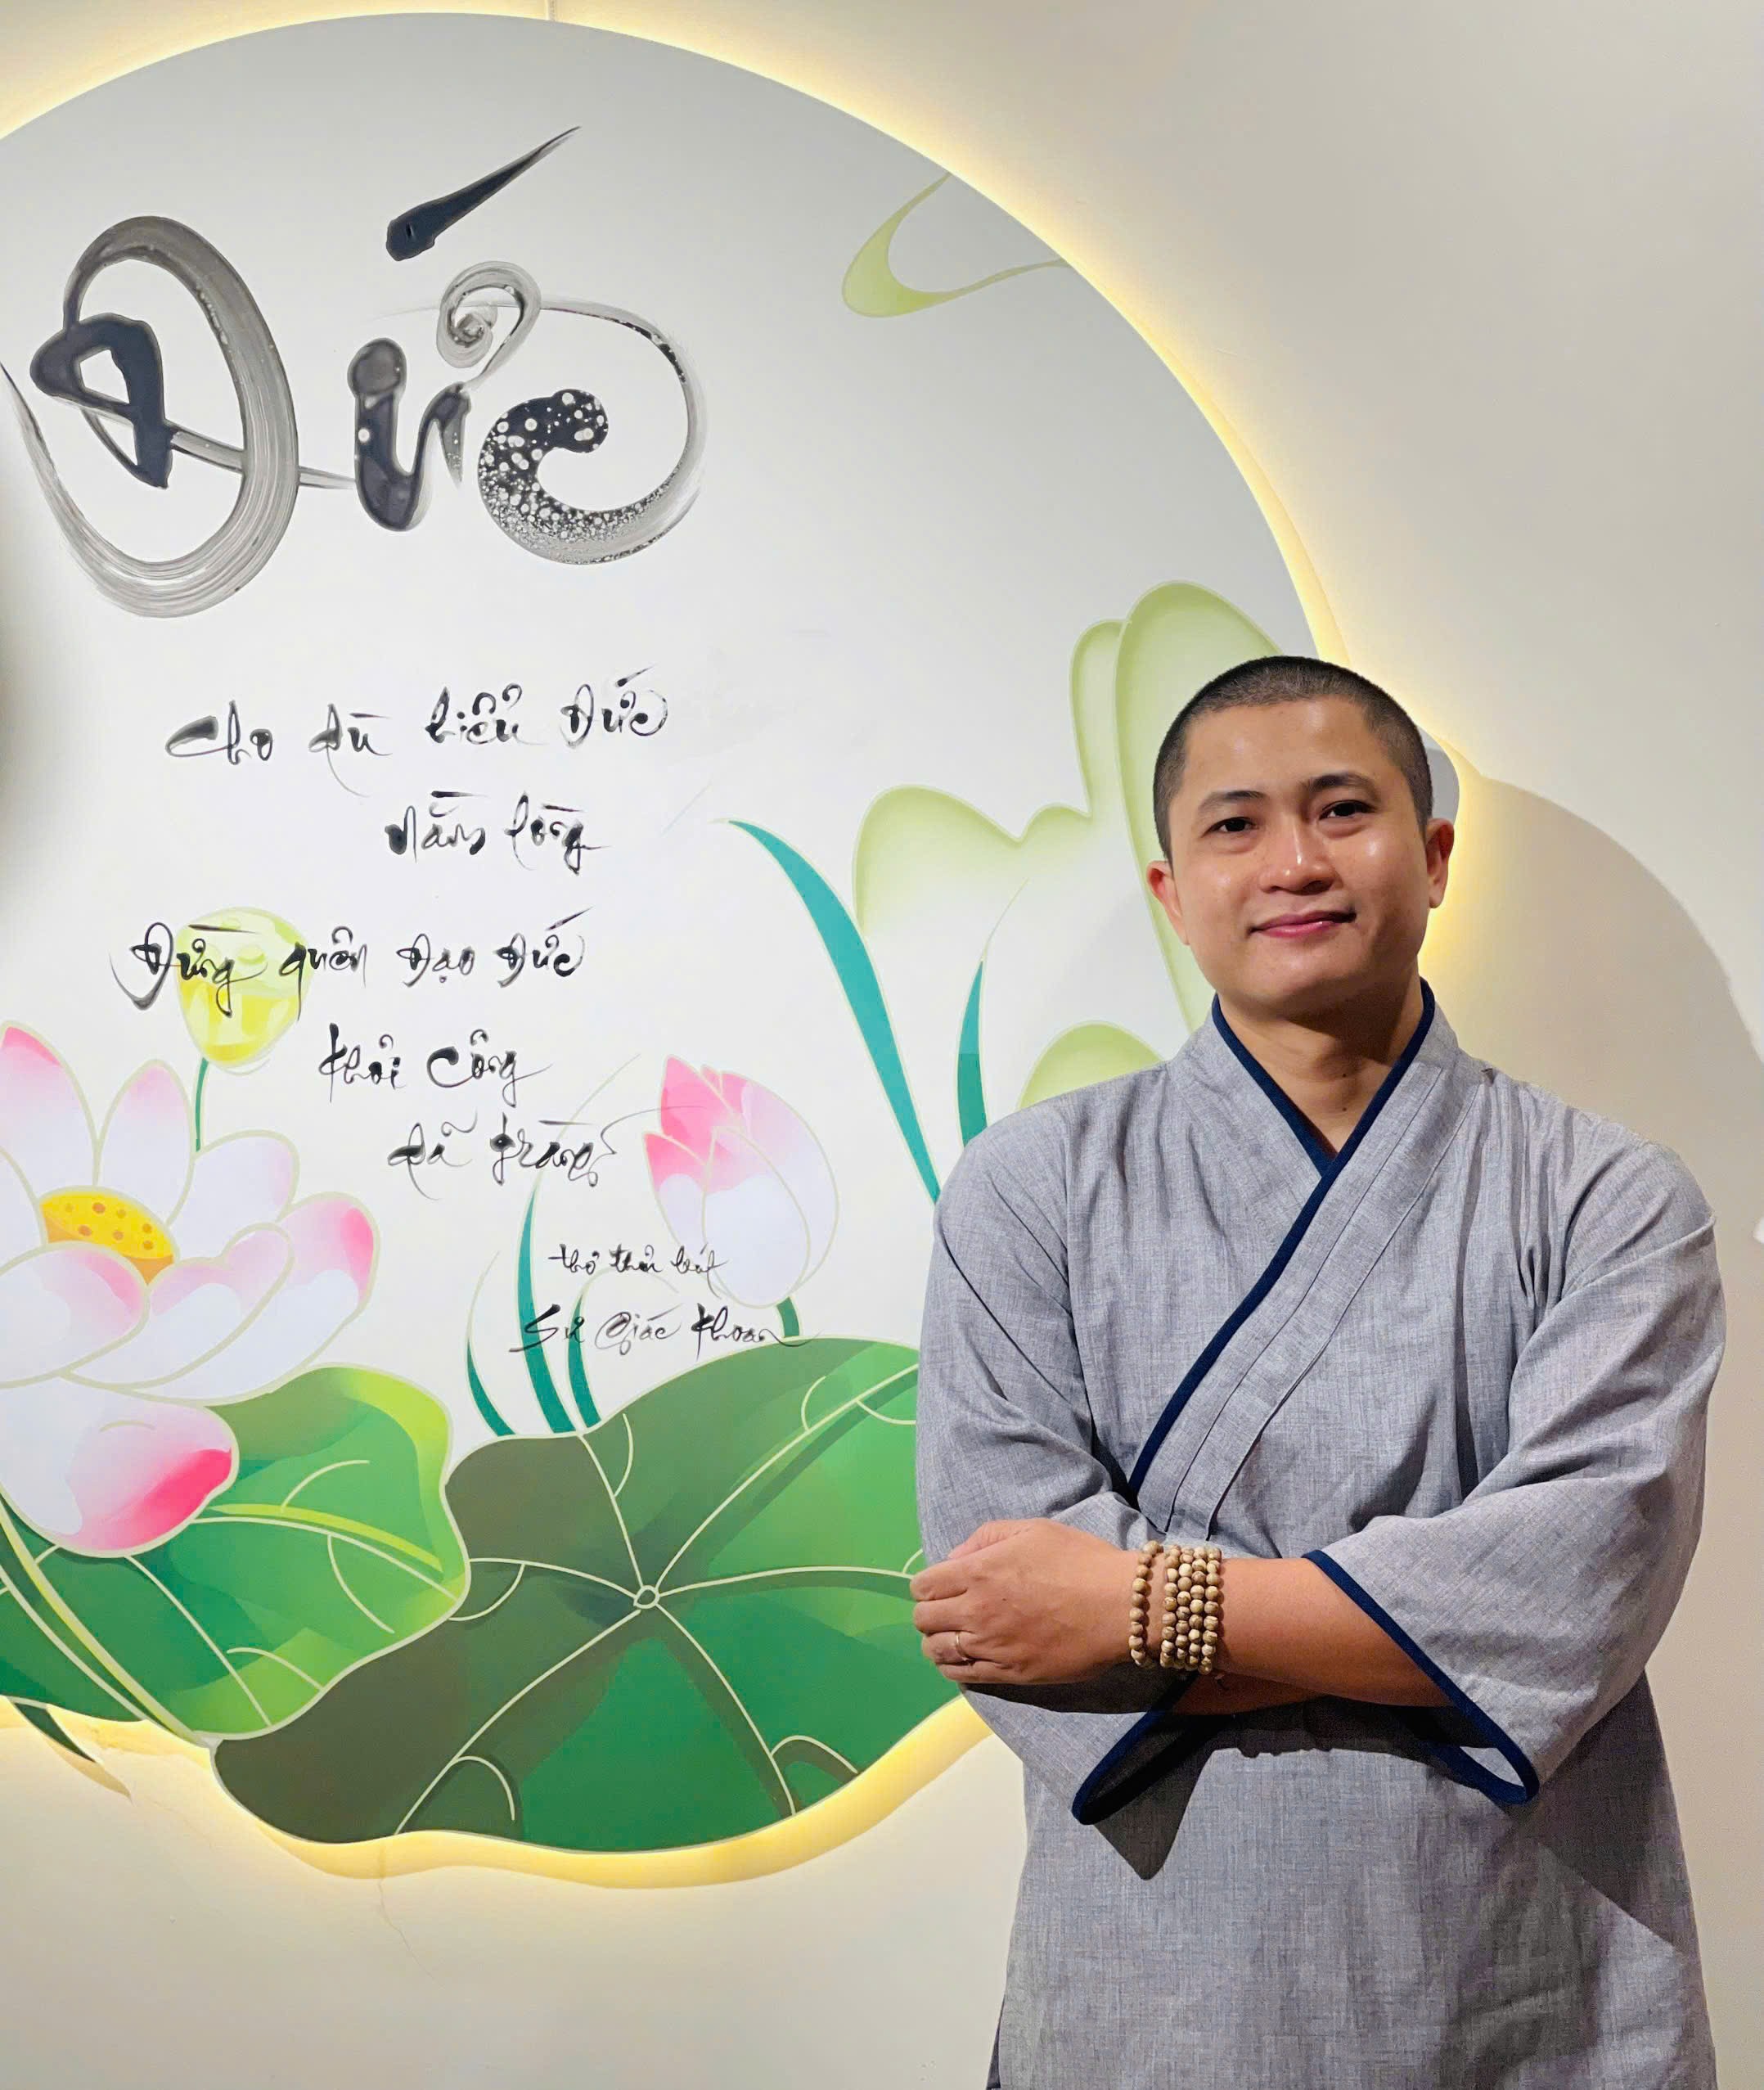 Đức
Cho dù hiểu Đức
nằm lòng
Đừng quên Đạo Đức
khỏi công
dã tràng
thơ thư bút
Sư Giác Khoan